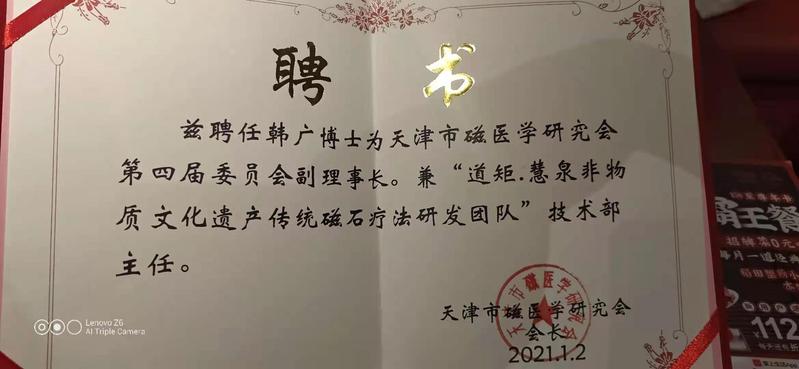 聘 书
兹聘任韩广博士为天津市磁医学研究会
第四届委员会副理事长。兼“道矩.慧泉非物
质文化遗产传统磁石疗法研发团队”技术部
主任。
天津市磁医学研究会
天津市磁医学研究会
会长
2021.1.2
Lenovo Z6
AI Triple Camera
霸王餐
招牌菜0元
每月一道经典
112